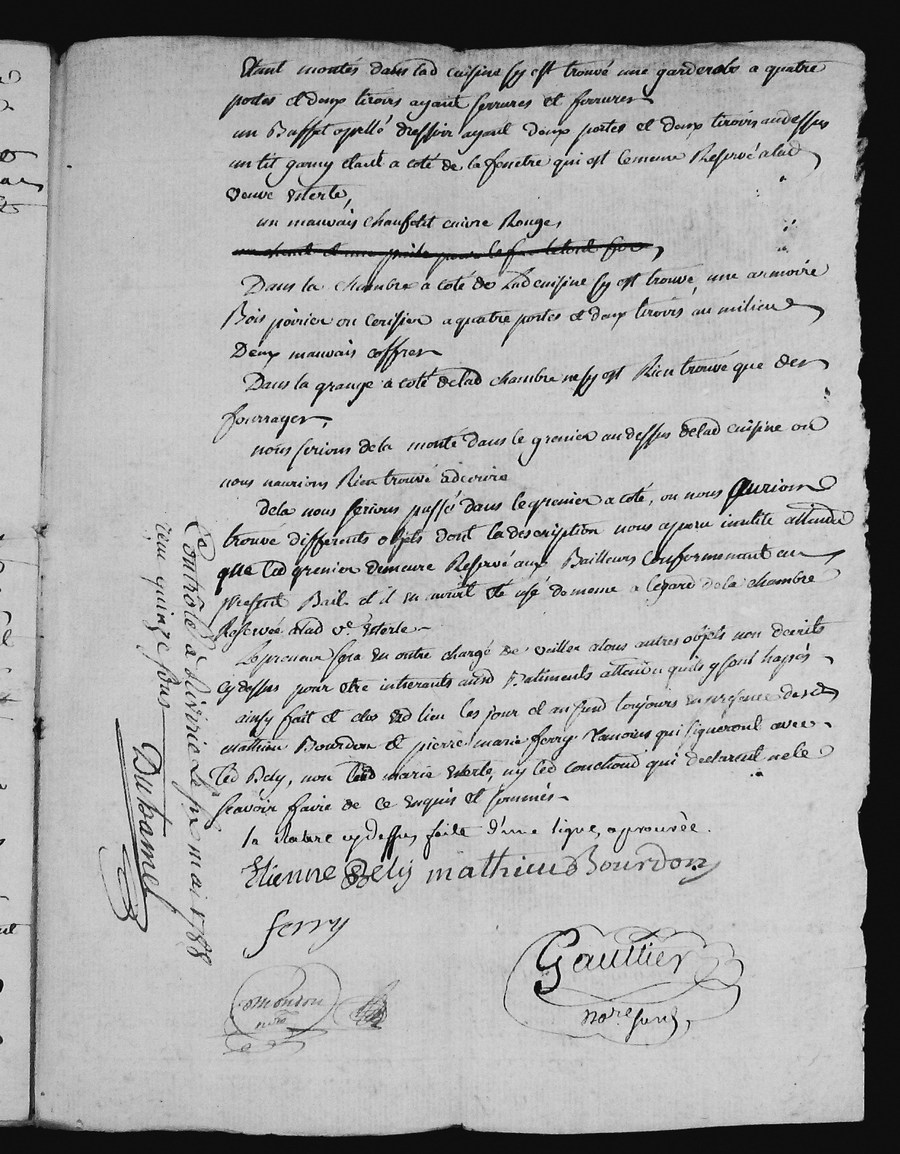 Etant montés dans lad cuisine sy est trouvé une garderobe a quatre
portes et deux tiroirs ayant serrures et ferrures
un Buffet apellé dressoir ayant deux portes et deux tiroirs audessus
un lit garny etant a coté de la fenetre qui est le meme Reservé alad
veuve Merle,
un mauvais chaufelit cuivre Rouge,
Dans la chambre a coté de Lad cuisine sy est trouvé, une armoire
Bois poirier ou Cerisier a quatre portes et deux tiroirs au milieu
Deux mauvais coffres
Dans la grange a coté delad chambre ne sy est Rien trouvé que des
fourrages,
nous serions dela monté dans le grenier audessus delad cuisine ou
nous naurions Rien trouvé adecrire
dela nous serions passé dans le grenier a coté, ou nous aurions
trouvé differents objets dont la description nous a paru inutile attendu
que led grenier demeure Reservé aux Bailleurs Conformement au
present Bail et il en auroit eté usé de meme a legard de la chambre
Reservée alad ve. Merle
Le preneur sera en outre chargé de veiller a tous autres objets non decrits
cydessus pour etre inherants auxd Batiments attendu quils y sont
ainsy fait et clos aud lieu les jour et an susd toujours en presence desd
mathieu Bourdon et pierre marie ferry Temoins qui signeront avec
led Bely, non lad marie Merle, ny led couchoud qui declarent ne le
scavoir faire de ce enquis et sommés
la Rature cydessus faite d'une ligne, aprouvée.
Etienne Bely mathieu Bourdon
ferry
Gaultier
nore
Controlé à Le mai 1788
quinze sous
Duhamel